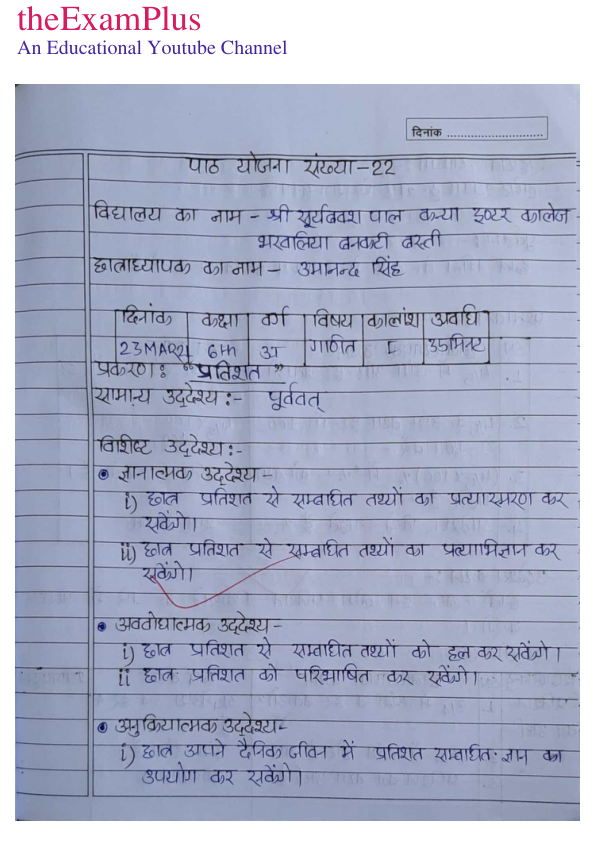 theExamPlus
An Educational Youtube Channel
दिनांक ............................
पाठ योजना संख्या-22
विद्यालय का नाम - श्री सूर्यबक्श पाल कन्या इण्टर कालेज
भरवलिया बनकटी बस्ती
छात्राध्यापक का नाम - उमानन्द सिंह
दिनांक कक्षा वर्ग विषय कालांश अवधि
23 MAR 6th अ गणित I 35 मिनट
प्रकरण: "प्रतिशत"
सामान्य उद्देश्य :- पूर्ववत्
विशिष्ट उद्देश्य :-
ज्ञानात्मक उद्देश्य -
i) छात्र प्रतिशत से सम्बाधित तथ्यों का प्रत्यास्मरण कर
सकेंगे।
ii) छात्र प्रतिशत से सम्बाधित तथ्यों का प्रत्याभिज्ञान कर
सकेंगे।
अवबोधात्मक उद्देश्य -
i) छात्र प्रतिशत से सम्बाधित तथ्यों को हल कर सकेंगे।
ii छात्र प्रतिशत को परिभाषित कर सकेंगे।
अनुक्रियात्मक उद्देश्य -
i) छात्र अपने दैनिक जीवन में प्रतिशत सम्बाधित ज्ञान का
उपयोग कर सकेंगे।